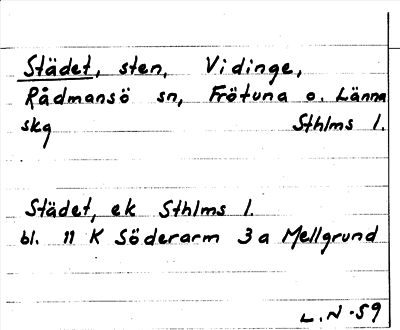 Städet, sten, Vidinge,
Rådmansö sn, Frötuna o. Länna
skg Sthlms l.
Städet, ek Sthlms l.
bl. 11 K Söderarm 3a Mellgrund
L.N-59